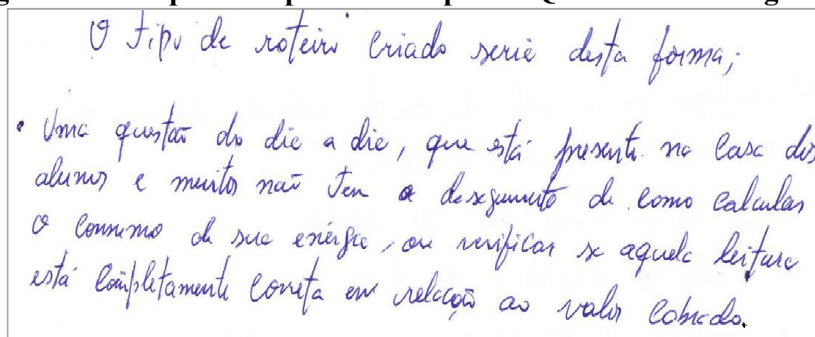 O tipo de roteiro criado seria desta forma;
• Uma questão do dia a dia, que está presente na casa dos
alunos e muitos não tem a de como calcular
o consumo de sua energia, ou verificar se aquela leitura
está completamente correta em relação ao valor cobrado.